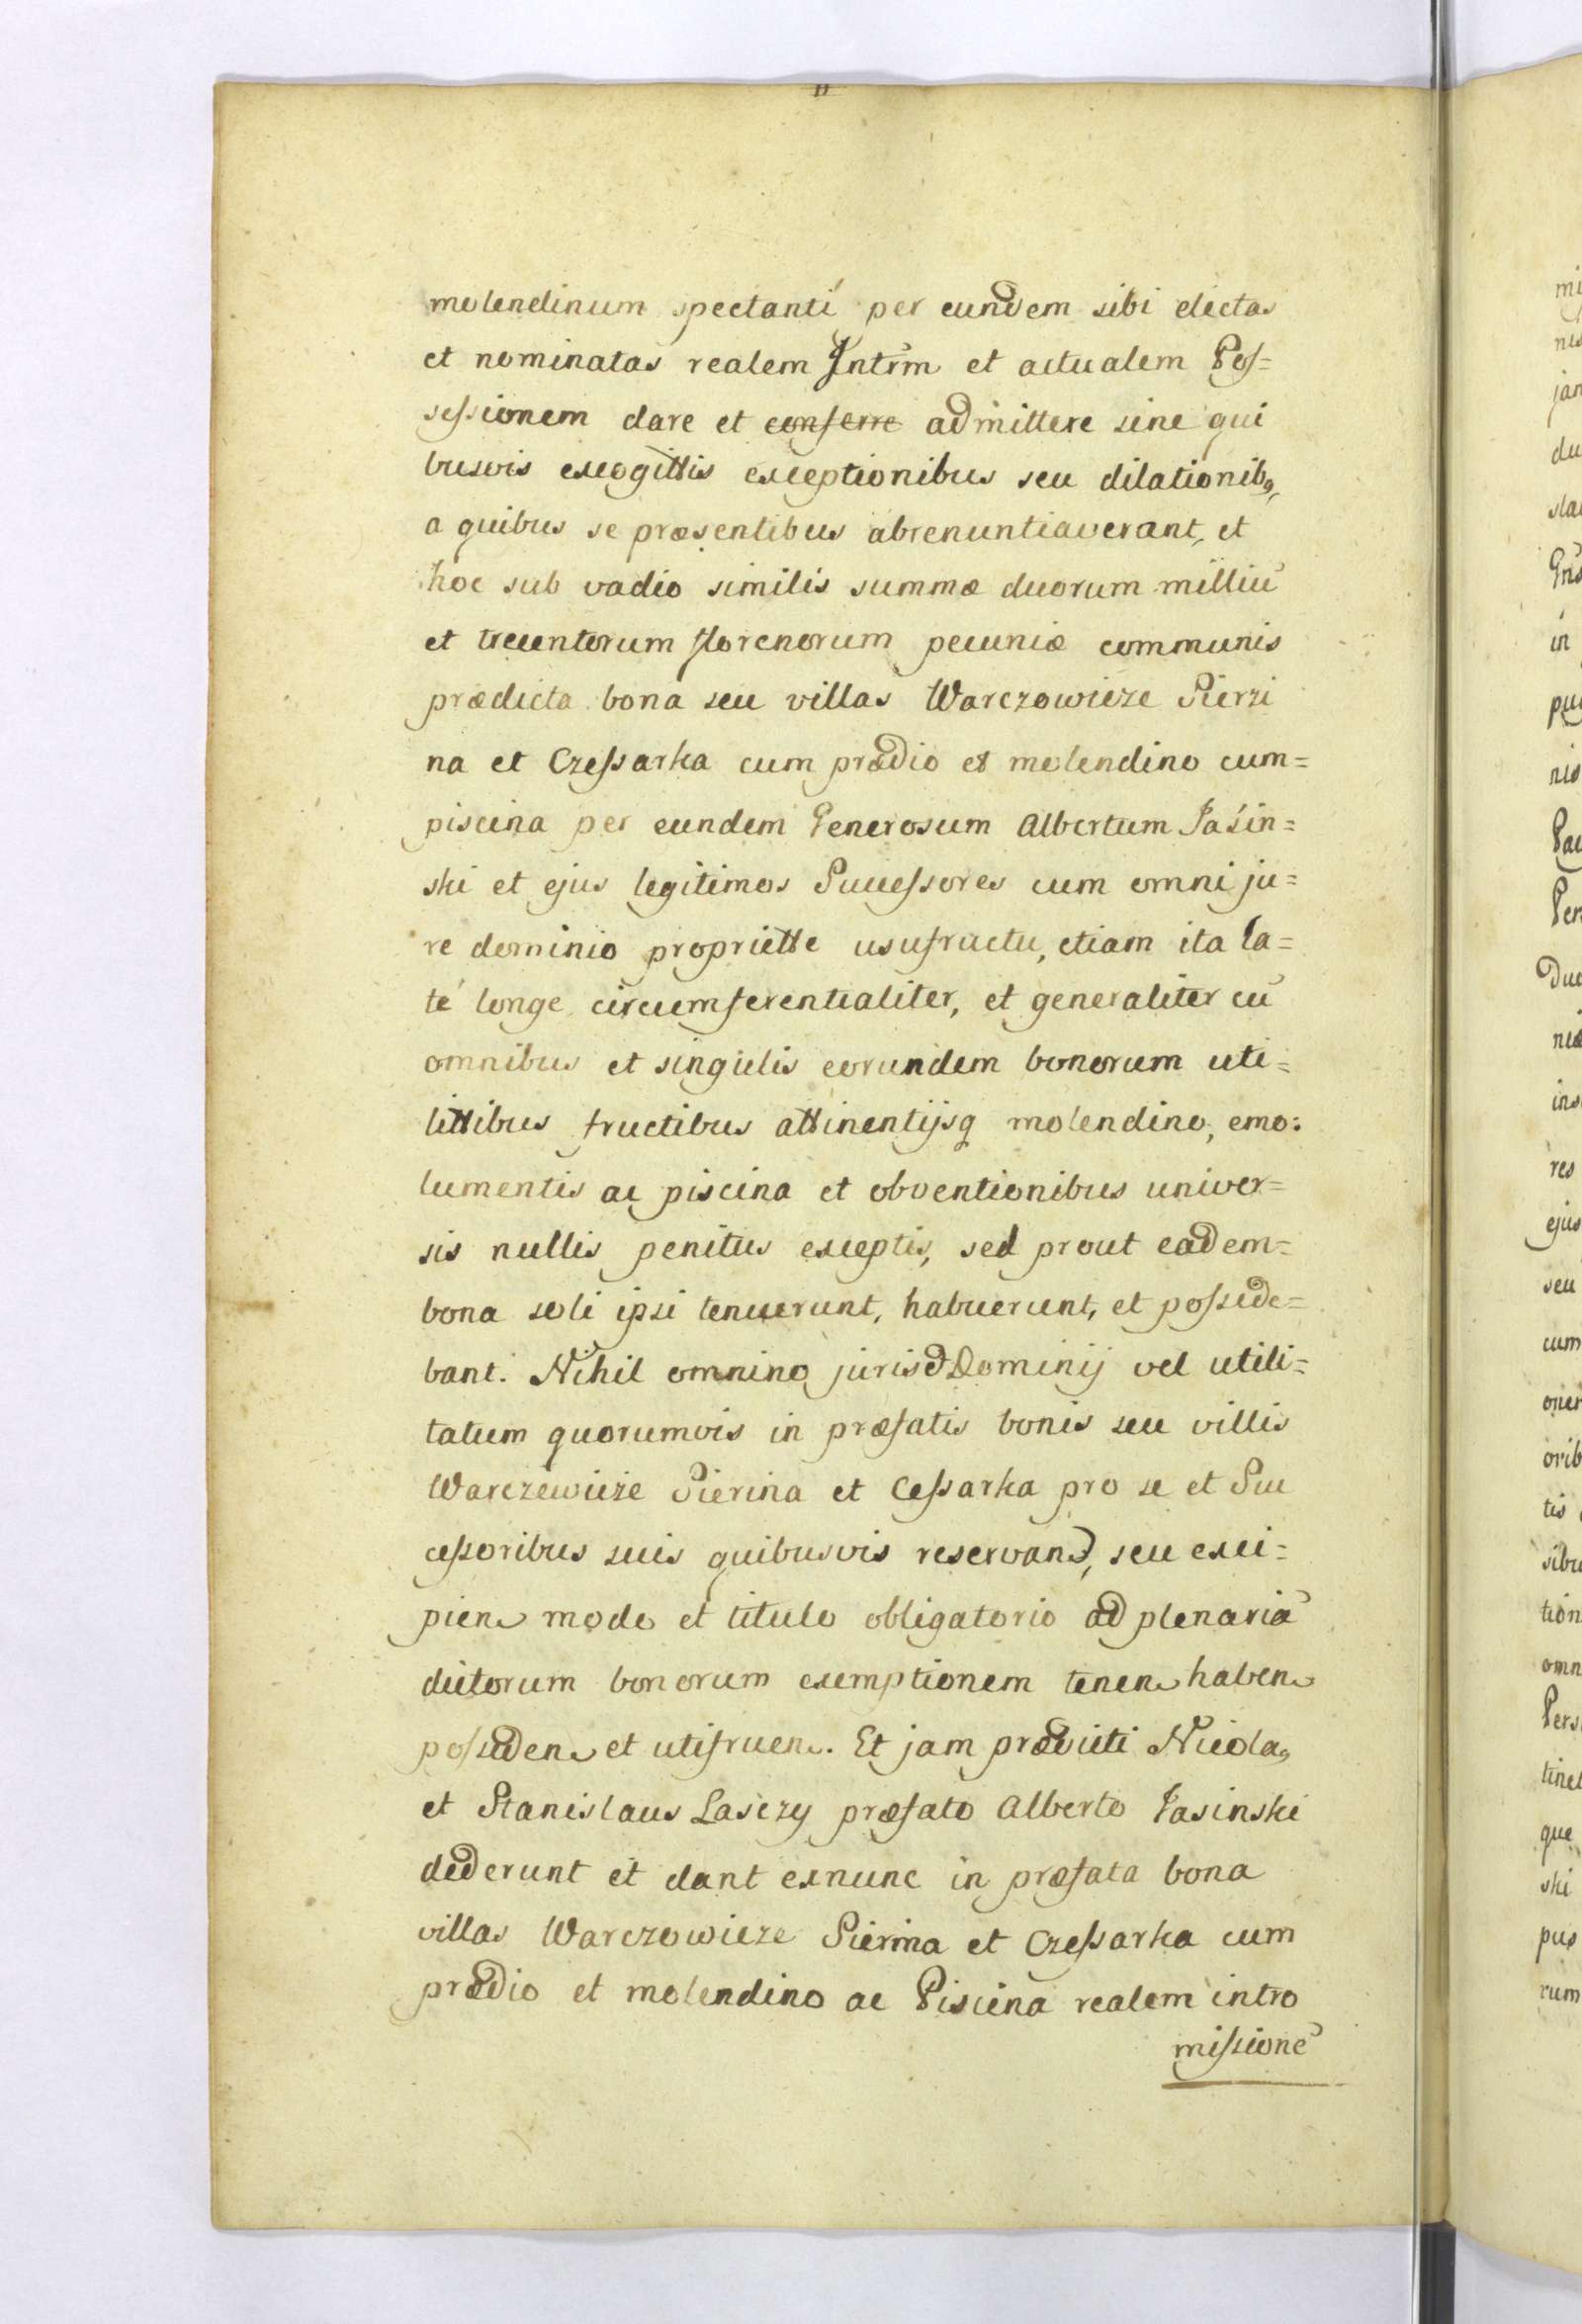 molendinum spectanti per eundem sibi electas
et nominatas realem Intrm et actualem Pos=
sessionem dare et conferre admittere sine qui
busvis excogittis exceptionibus seu dilationibq,
a quibus se præsentibus abrenuntiaverant, et
hoc sub vadio similis summæ duorum milliũ
et trecentorum florenorum pecuniæ communis
prædicta bona seu villas Warczowieze Pierzi
na et Czessarka cum prædio et molendino cum=
piscina per eundem Generosum Albertum Jaśin=
ski et ejus legitimos Successores cum omni ju=
re dominio propriette usufructu, etiam ita la=
té longe circumferentialiter, et generaliter cũ
omnibus et singulis eorundem bonorum uti=
littibus fructibus attinentijsq molendino, emo:
lumentis ac piscina et obventionibus univer=
sis nullis penitus exceptis, sed prout eadem=
bona soli ipsi tenuerunt, habuerunt, et posside=
bant. Nihil omnino juris et Dominij vel utili=
tatum quorumvis in præfatis bonis seu villis
Warczewieże Pierina et Cessarka pro se et Suc
cessoribus suis quibusvis reservand, seu exci=
pien mode et titulo obligatorio ad plenariã
dictorum bonorum exemptionem tenen haben
possiden et utifruen. Et jam prædicti Nicolaq
et Stanislaus Lasczy præfato Alberto Jasinski
dederunt et dant exnunc in præfata bona
villas Warczowieze Pierina et Czessarka cum
prædio et molendino ac Piscina realem intro
missionẽ
mi
nis
jan
du
sta
Gns
in
pu
nis
Pau
Per
Duc
niæ
ins
res
ejus
seu
cum
oner
orib
tis
sibu
tion
omn
Pers
tinet
que
ski
pus
rum